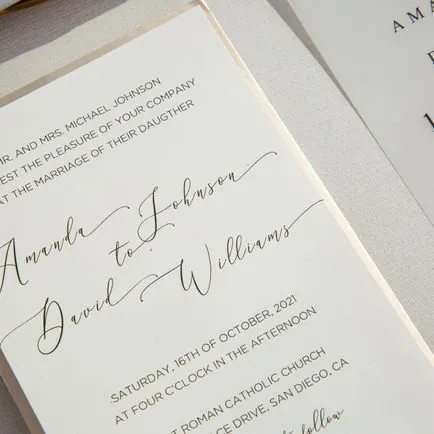 MR. AND MRS. MICHAEL JOHNSON
EST THE PLEASURE OF YOUR COMPANY
AT THE MARRIAGE OF THEIR DAUGTHER
Amanda Johnson
to
David Williams
SATURDAY, 16TH OF OCTOBER, 2021
AT FOUR C'CLOCK IN THE AFTERNOON
T ROMAN CATHOLIC CHURCH
CE DRIVE, SAN DIEGO, CA
follow
AMA